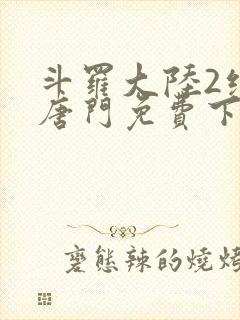 斗羅大陸2絕
唐門免費下
變態辣的燒烤